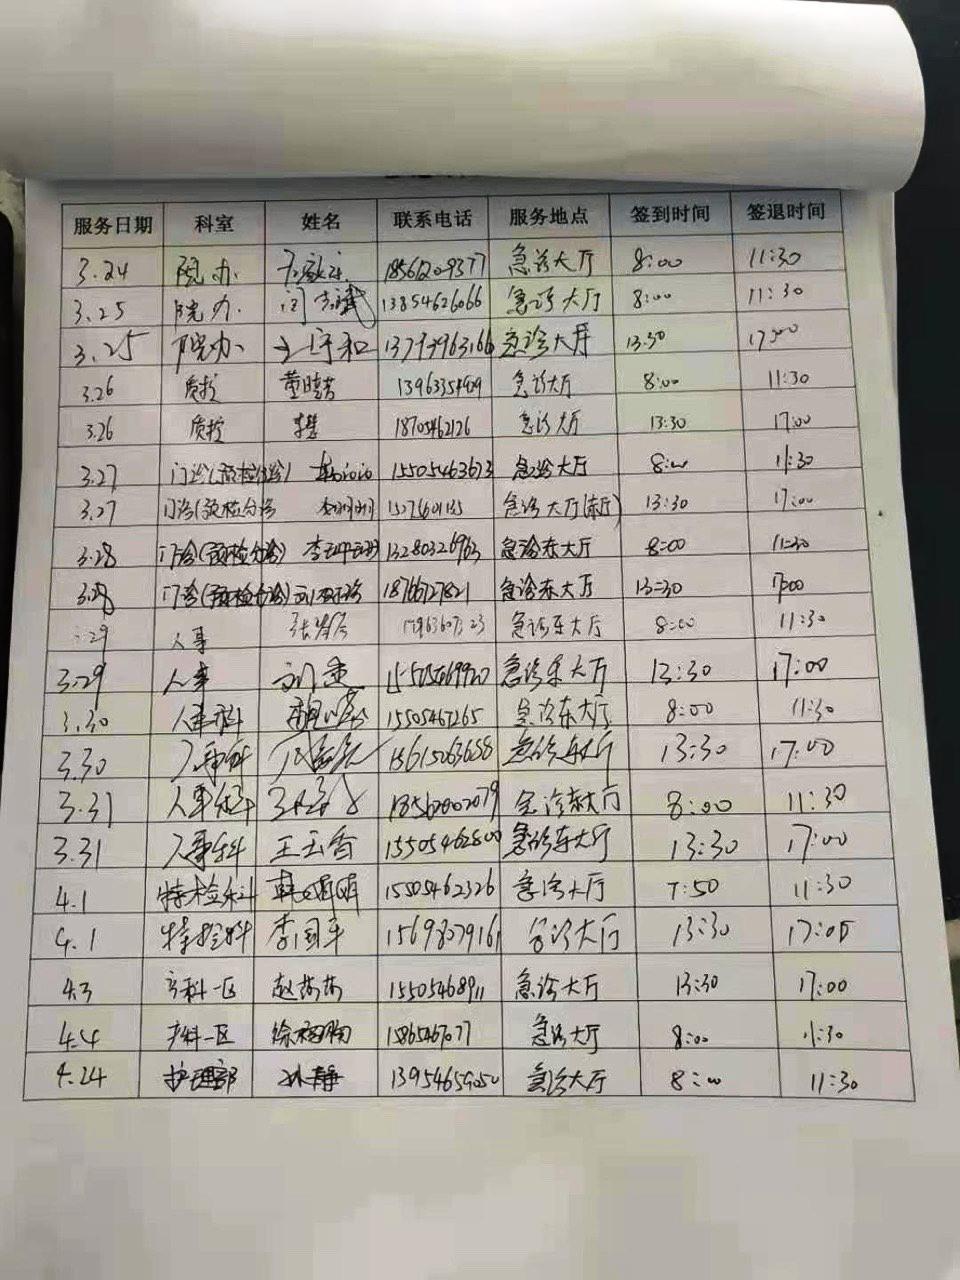 服务日期 科室 姓名 联系电话 服务地点 签到时间 签退时间
3.24 院办 18561209377 急诊大厅 8:00 11:30
3.25 院办 闫志斌 13854626066 急诊大厅 8:00 11:30
3.25 院办 王守和 急诊大厅 13:30 17:00
3.26 质控 董晓芳 急诊大厅 8:00 11:30
3.26 质控 18705462126 急诊大厅 13:30 17:00
3.27 门诊(预检分诊) 15505463673 急诊大厅 8:00 11:30
3.27 门诊(预检分诊 急诊大厅(东厅) 13:30 17:00
3.28 门诊(预检分诊) 13280326963 急诊东大厅 8:00 11:30
3.28 门诊(预检分诊) 18766727821 急诊东大厅 13:30 17:00
3.29 人事 急诊东大厅 8:00 11:30
3.29 人事 急诊东大厅 13:30 17:00
3.30 人事科 15505467265 急诊东大厅 8:00 11:30
3.30 人事科 15615063658 急诊东大厅 13:30 17:00
3.31 人事科 急诊东大厅 8:00 11:30
3.31 人事科 王玉香 15505462800 急诊东大厅 13:30 17:00
4.1 特检科 韩明明 15505462326 急诊大厅 7:50 11:30
4.1 特检科 李国平 15698079161 急诊大厅 13:30 17:05
4.3 产科一区 赵芳芳 15505468911 急诊大厅 13:30 17:00
4.4 产科一区 15865467077 急诊大厅 8:00 11:30
4.24 护理部 孙静 13954659050 急诊大厅 8:00 11:30